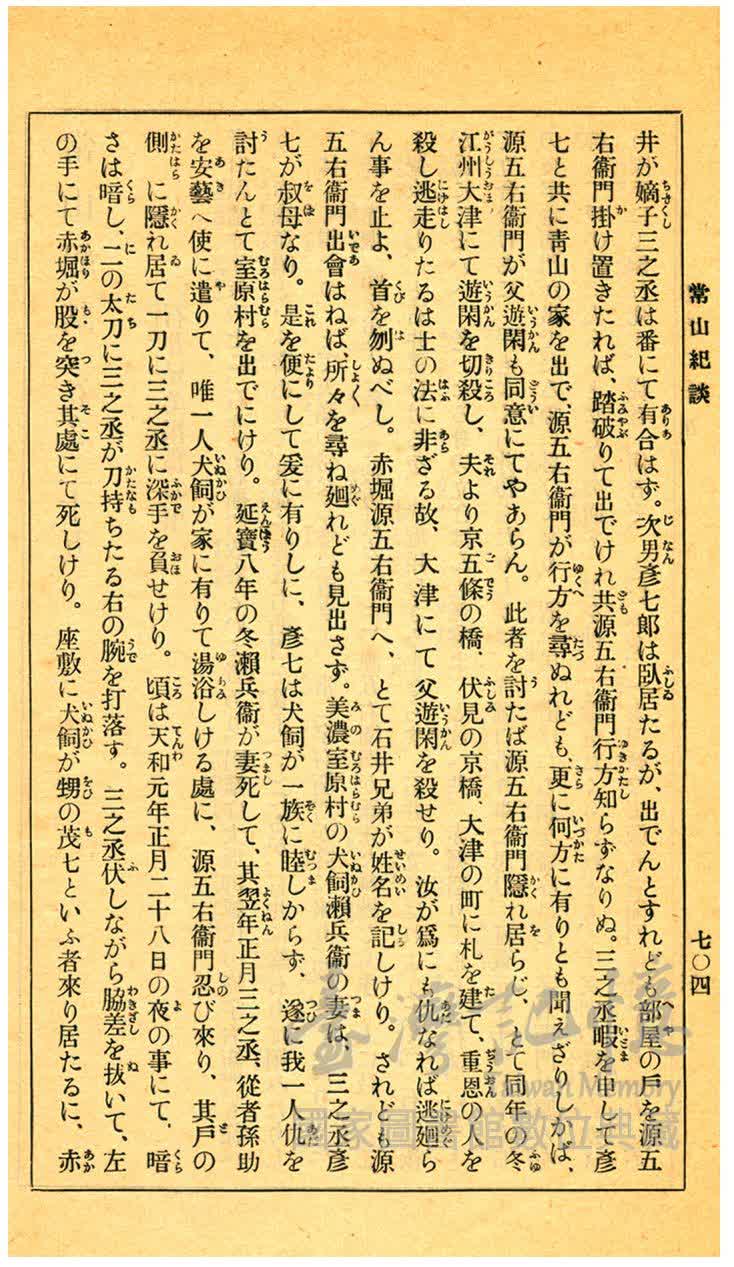 常山紀談
七〇四
井が嫡子三之丞は番にて有合はず。次男彥七郎は臥居たるが、出でんとすれども部屋の戶を源五
右衞門掛け置きたれば、踏破りて出でけれ共源五右衞門行方知らずなりぬ。三之丞暇を申して彥
七と共に靑山の家を出で、源五右衞門が行方を尋ぬれども、更に何方に有りとも聞えざりしかば、
源五右衞門が父遊閑も同意にてやあらん。此者を討たば源五右衞門隱れ居らじ、とて同年の冬
江州大津にて遊閑を切殺し、夫より京五條の橋、伏見の京橋、大津の町に札を建て、重恩の人を
殺し逃走りたるは士の法に非ざる故、大津にて父遊閑を殺せり。汝が爲にも仇なれば逃廻ら
ん事を止よ、首を刎ぬべし。赤堀源五右衞門へ、とて石井兄弟が姓名を記しけり。されども源
五右衞門出會はねば、所々を尋ね廻れども見出さず。美濃室原村の犬飼瀨兵衞の妻は、三之丞彥
七が叔母なり。是を便にして爰に有りしに、彥七は犬飼が一族に睦しからず、遂に我一人仇を
討たんとて室原村を出でにけり。延寶八年の冬瀨兵衞が妻死して、其翌年正月三之丞、從者孫助
を安藝へ使に遣りて、唯一人犬飼が家に有りて湯浴しける處に、源五右衞門忍び來り、其戶の
側に隱れ居て一刀に三之丞に深手を負せけり。頃は天和元年正月二十八日の夜の事にて、暗
さは暗し、二の太刀に三之丞が刀持ちたる右の腕を打落す。三之丞伏しながら脇差を拔いて、左
の手にて赤堀が股を突き其處にて死しけり。座敷に犬飼が甥の茂七といふ者來り居たるに、赤
臺灣記憶
Taiwan Memory
國家圖書館數位典藏